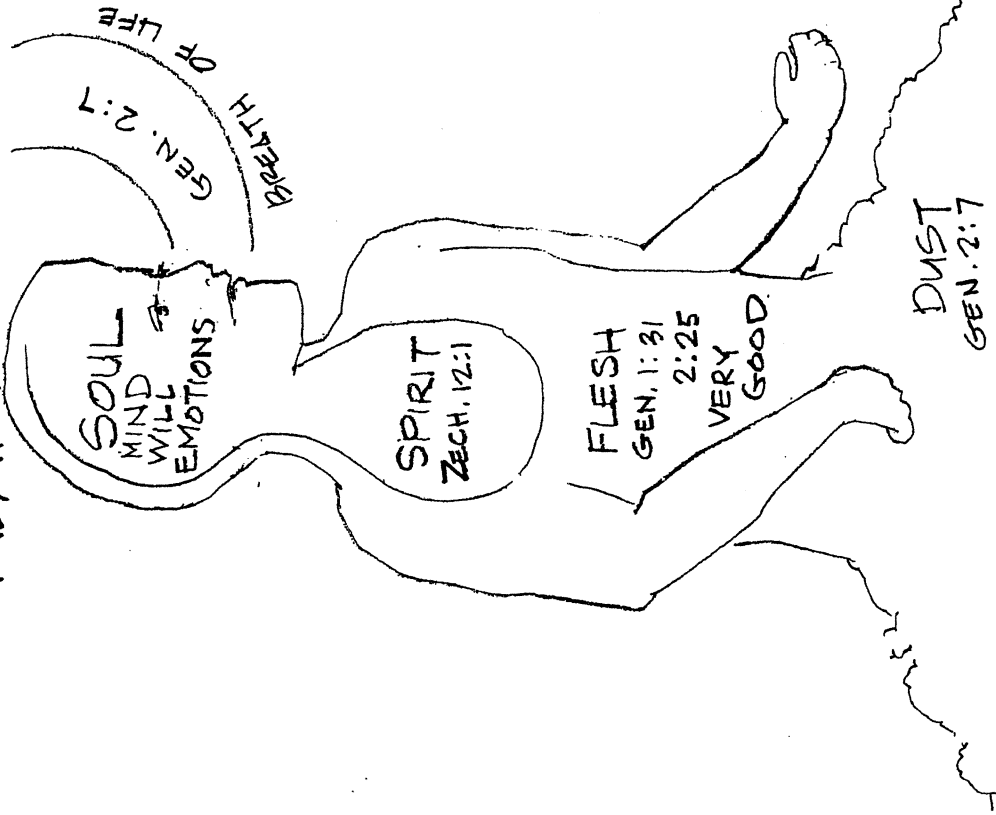 BREATH OF LIFE
GEN. 2:7
SOUL
MIND
WILL
EMOTIONS
SPIRIT
ZECH. 12:1
FLESH
GEN. 1:31
2:25
VERY
GOOD
DUST
GEN. 2:7